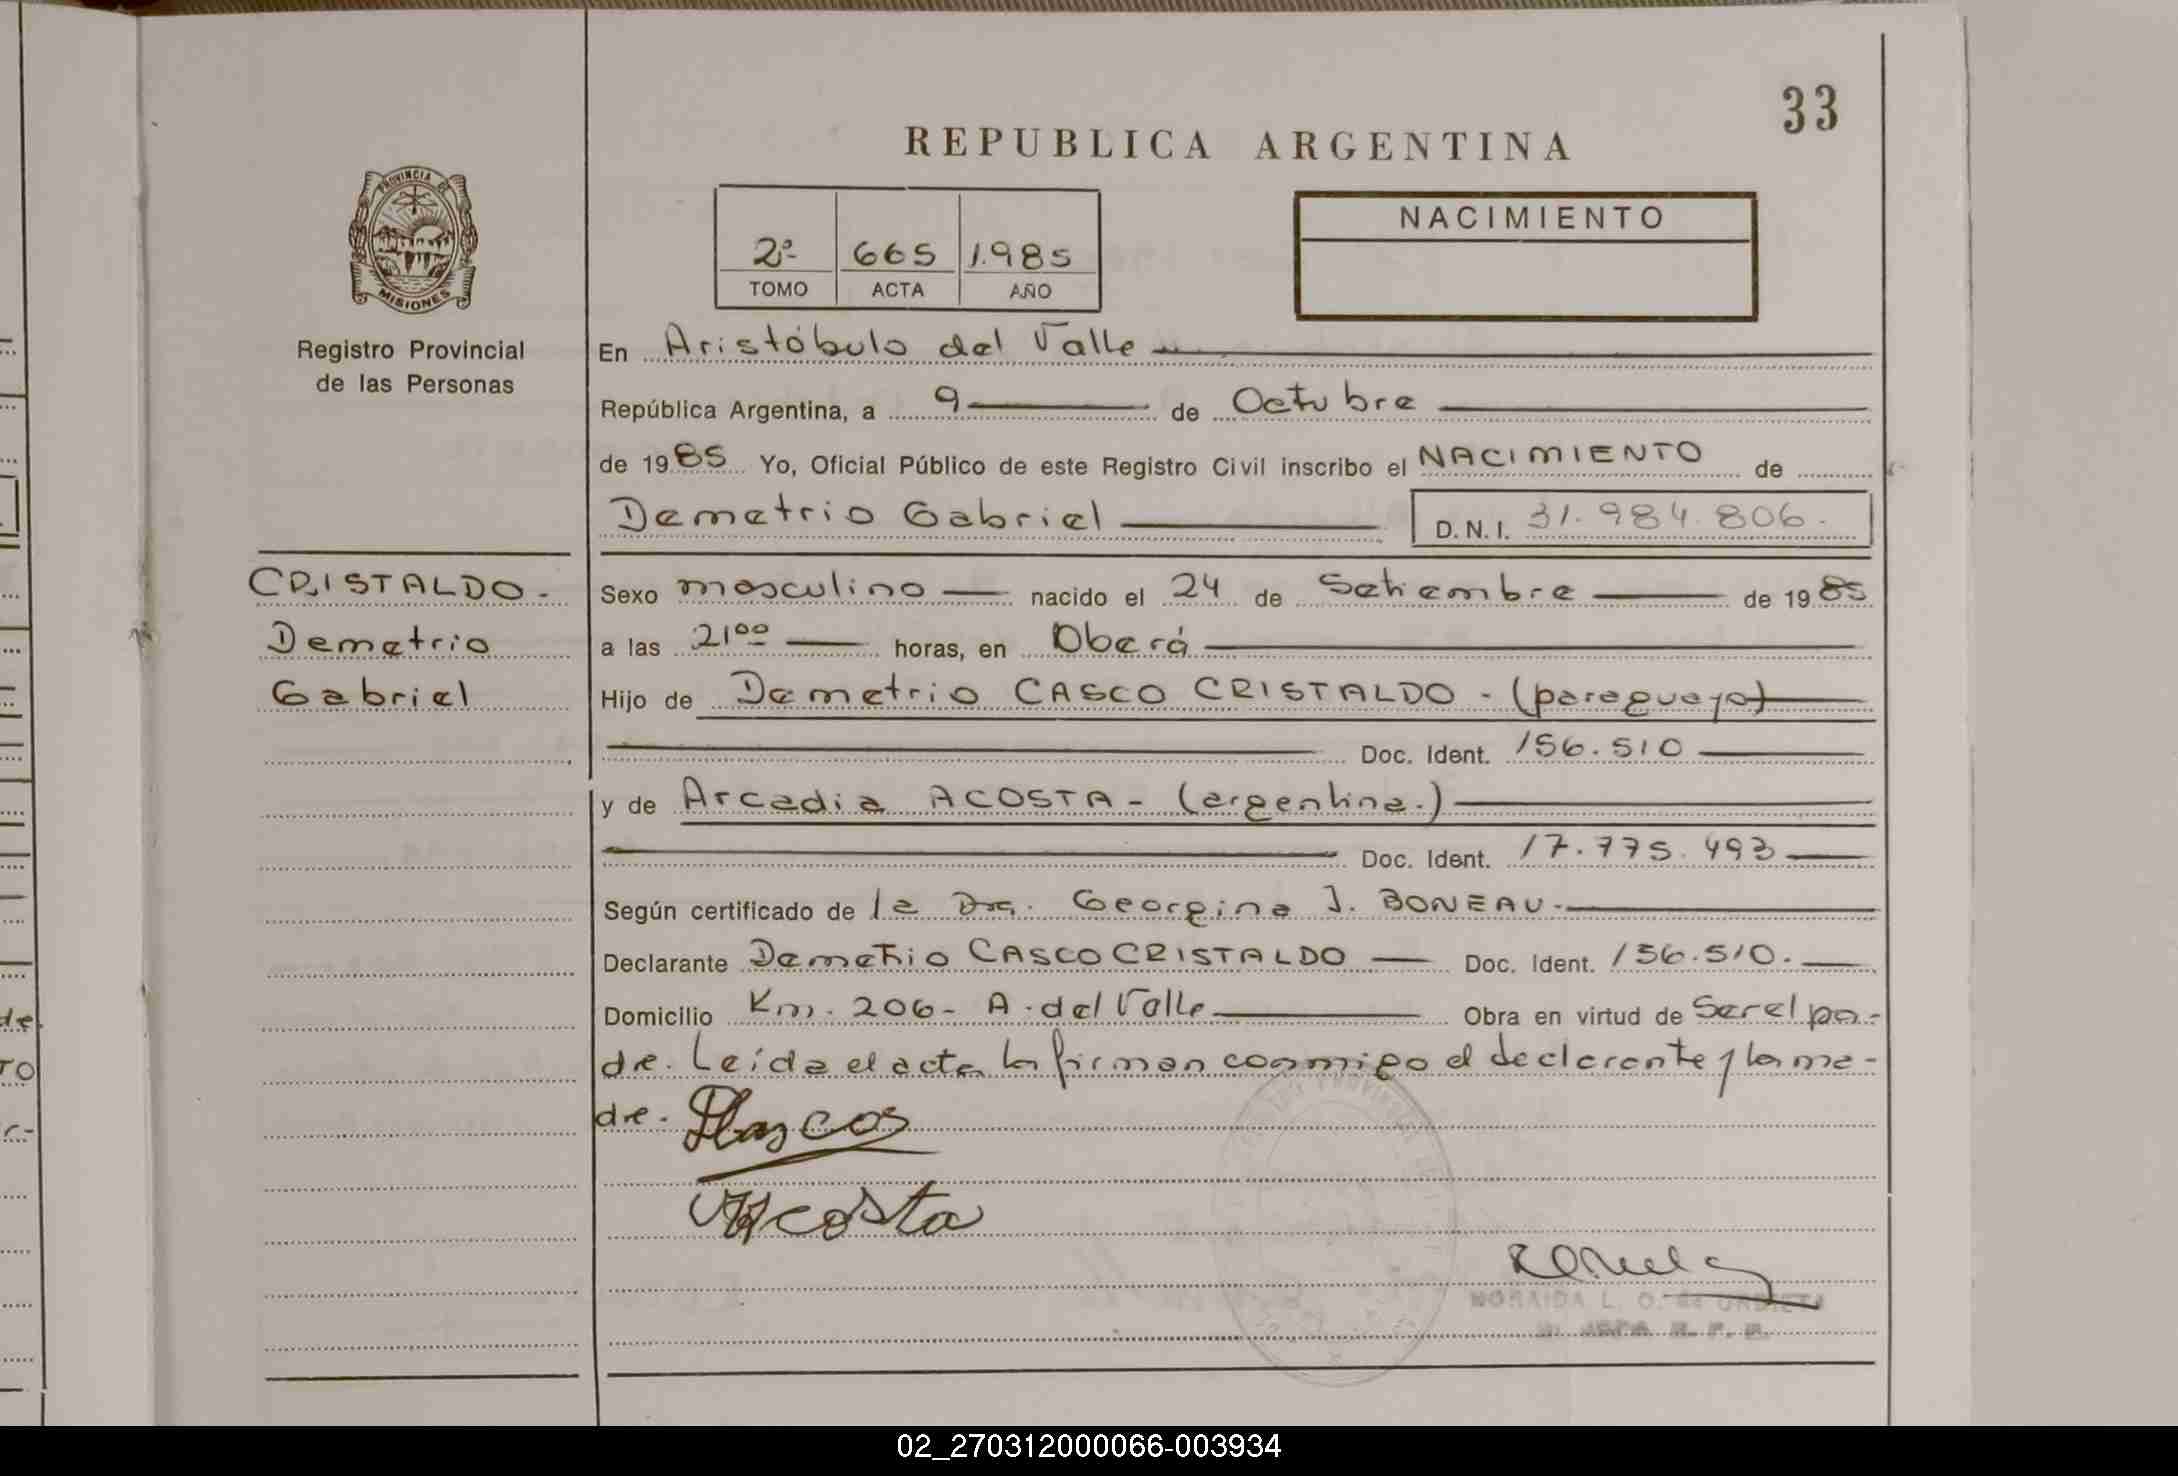 33
REPUBLICA ARGENTINA
PROVINCIA DE
MISIONES
Registro Provincial
de las Personas
2º 665 1.985
TOMO ACTA AÑO
NACIMIENTO
En Aristóbulo del Valle
República Argentina, a 9 de Octubre
de 1985 Yo, Oficial Público de este Registro Civil inscribo el NACIMIENTO de
Demetrio Gabriel D.N.I. 31.984.806.
CRISTALDO.-
Demetrio
Gabriel
Sexo masculino nacido el 24 de Setiembre de 1985
a las 21ºº horas, en Oberá
Hijo de Demetrio CASCO CRISTALDO - (paraguayo)
Doc. Ident. 156.510
y de Arcadia ACOSTA - (argentina.)
Doc. Ident. 17.775.493
Según certificado de la Dra. Georgina J. BONEAU.-
Declarante Demetrio CASCO CRISTALDO Doc. Ident. 156.510.
Domicilio Km. 206- A. del Valle Obra en virtud de Ser el pa-
dre. Leída el acta la firman conmigo el declarante y la ma-
dre.
Acosta
NORAIDA L. O. de URBIETA
de
ro
r-
02_270312000066-003934